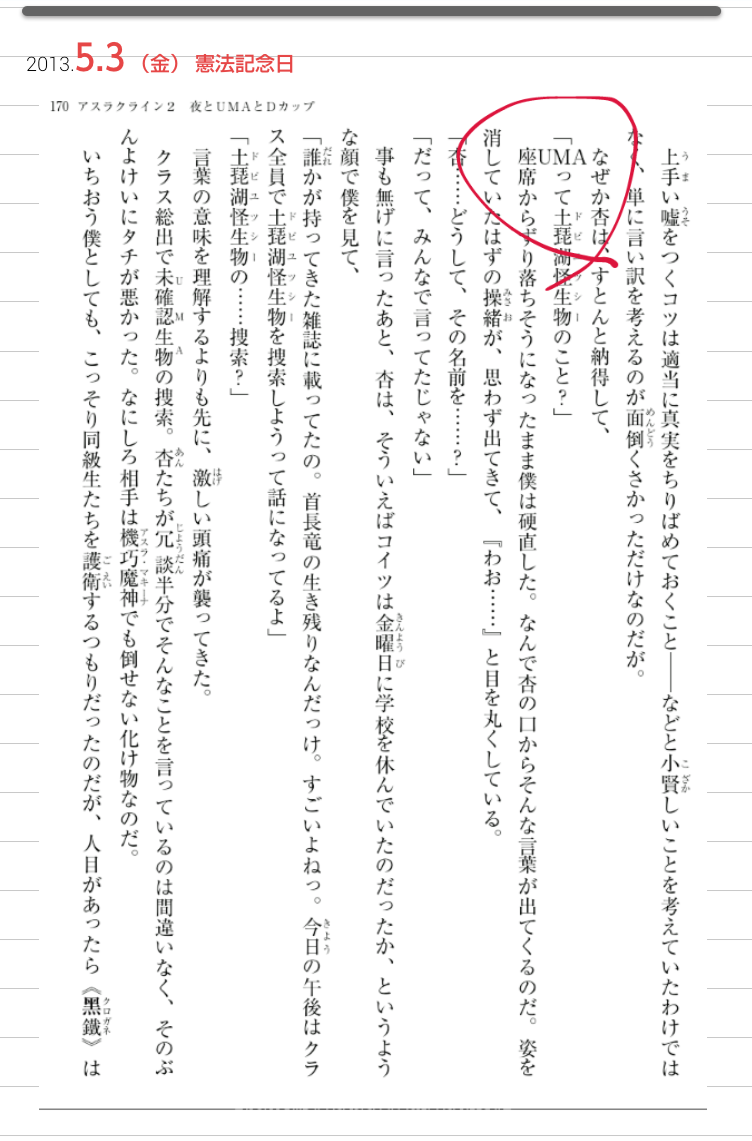 2013.5.3（金）憲法記念日
170 アスラクライン２　夜とＵＭＡとＤカップ
上手い嘘をつくコツは適当に真実をちりばめておくこと――などと小賢しいことを考えていたわけでは
なく、単に言い訳を考えるのが面倒くさかっただけなのだが。
なぜか杏は、すとんと納得して、
「UMAって土琵湖怪生物のこと？」
座席からずり落ちそうになったまま僕は硬直した。なんで杏の口からそんな言葉が出てくるのだ。姿を
消していたはずの操緒が、思わず出てきて、『わお……』と目を丸くしている。
「杏……どうして、その名前を……？」
「だって、みんなで言ってたじゃない」
事も無げに言ったあと、杏は、そういえばコイツは金曜日に学校を休んでいたのだったか、というよう
な顔で僕を見て、
「誰かが持ってきた雑誌に載ってたの。首長竜の生き残りなんだっけ。すごいよねっ。今日の午後はクラ
ス全員で土琵湖怪生物を捜索しようって話になってるよ」
「土琵湖怪生物の……捜索？」
言葉の意味を理解するよりも先に、激しい頭痛が襲ってきた。
クラス総出で未確認生物の捜索。杏たちが冗談半分でそんなことを言っているのは間違いなく、そのぶ
んよけいにタチが悪かった。なにしろ相手は機巧魔神でも倒せない化け物なのだ。
いちおう僕としても、こっそり同級生たちを護衛するつもりだったのだが、人目があったら《黑鐵》は